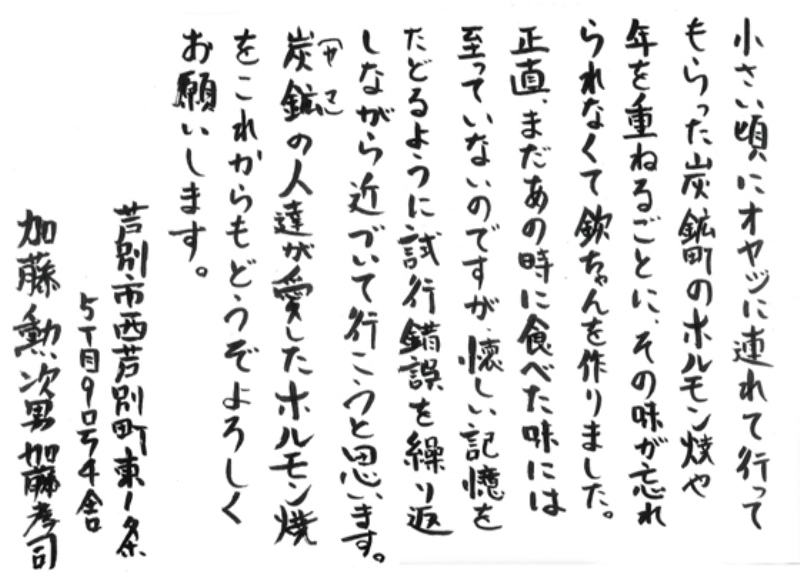 小さい頃にオヤジに連れて行って
もらった炭鉱町のホルモン焼や
年を重ねるごとに、その味が忘れ
られなくて欽ちゃんを作りました。
正直、まだあの時に食べた味には
至っていないのですが、懐しい記憶を
たどるように試行錯誤を繰り返
しながら近づいて行こうと思います。
炭鉱(ヤマ)の人達が愛したホルモン焼
をこれからもどうぞよろしく
お願いします。
芦別市西芦別町東1条
5丁目9号4舎
加藤勲次男加藤孝司